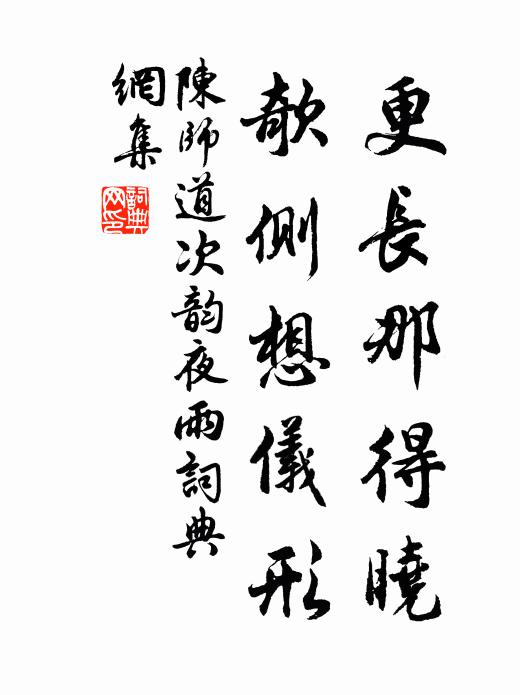 更長那得曉
欹側想儀形
陳師道次韵夜雨詞典
網集
詞典
网印